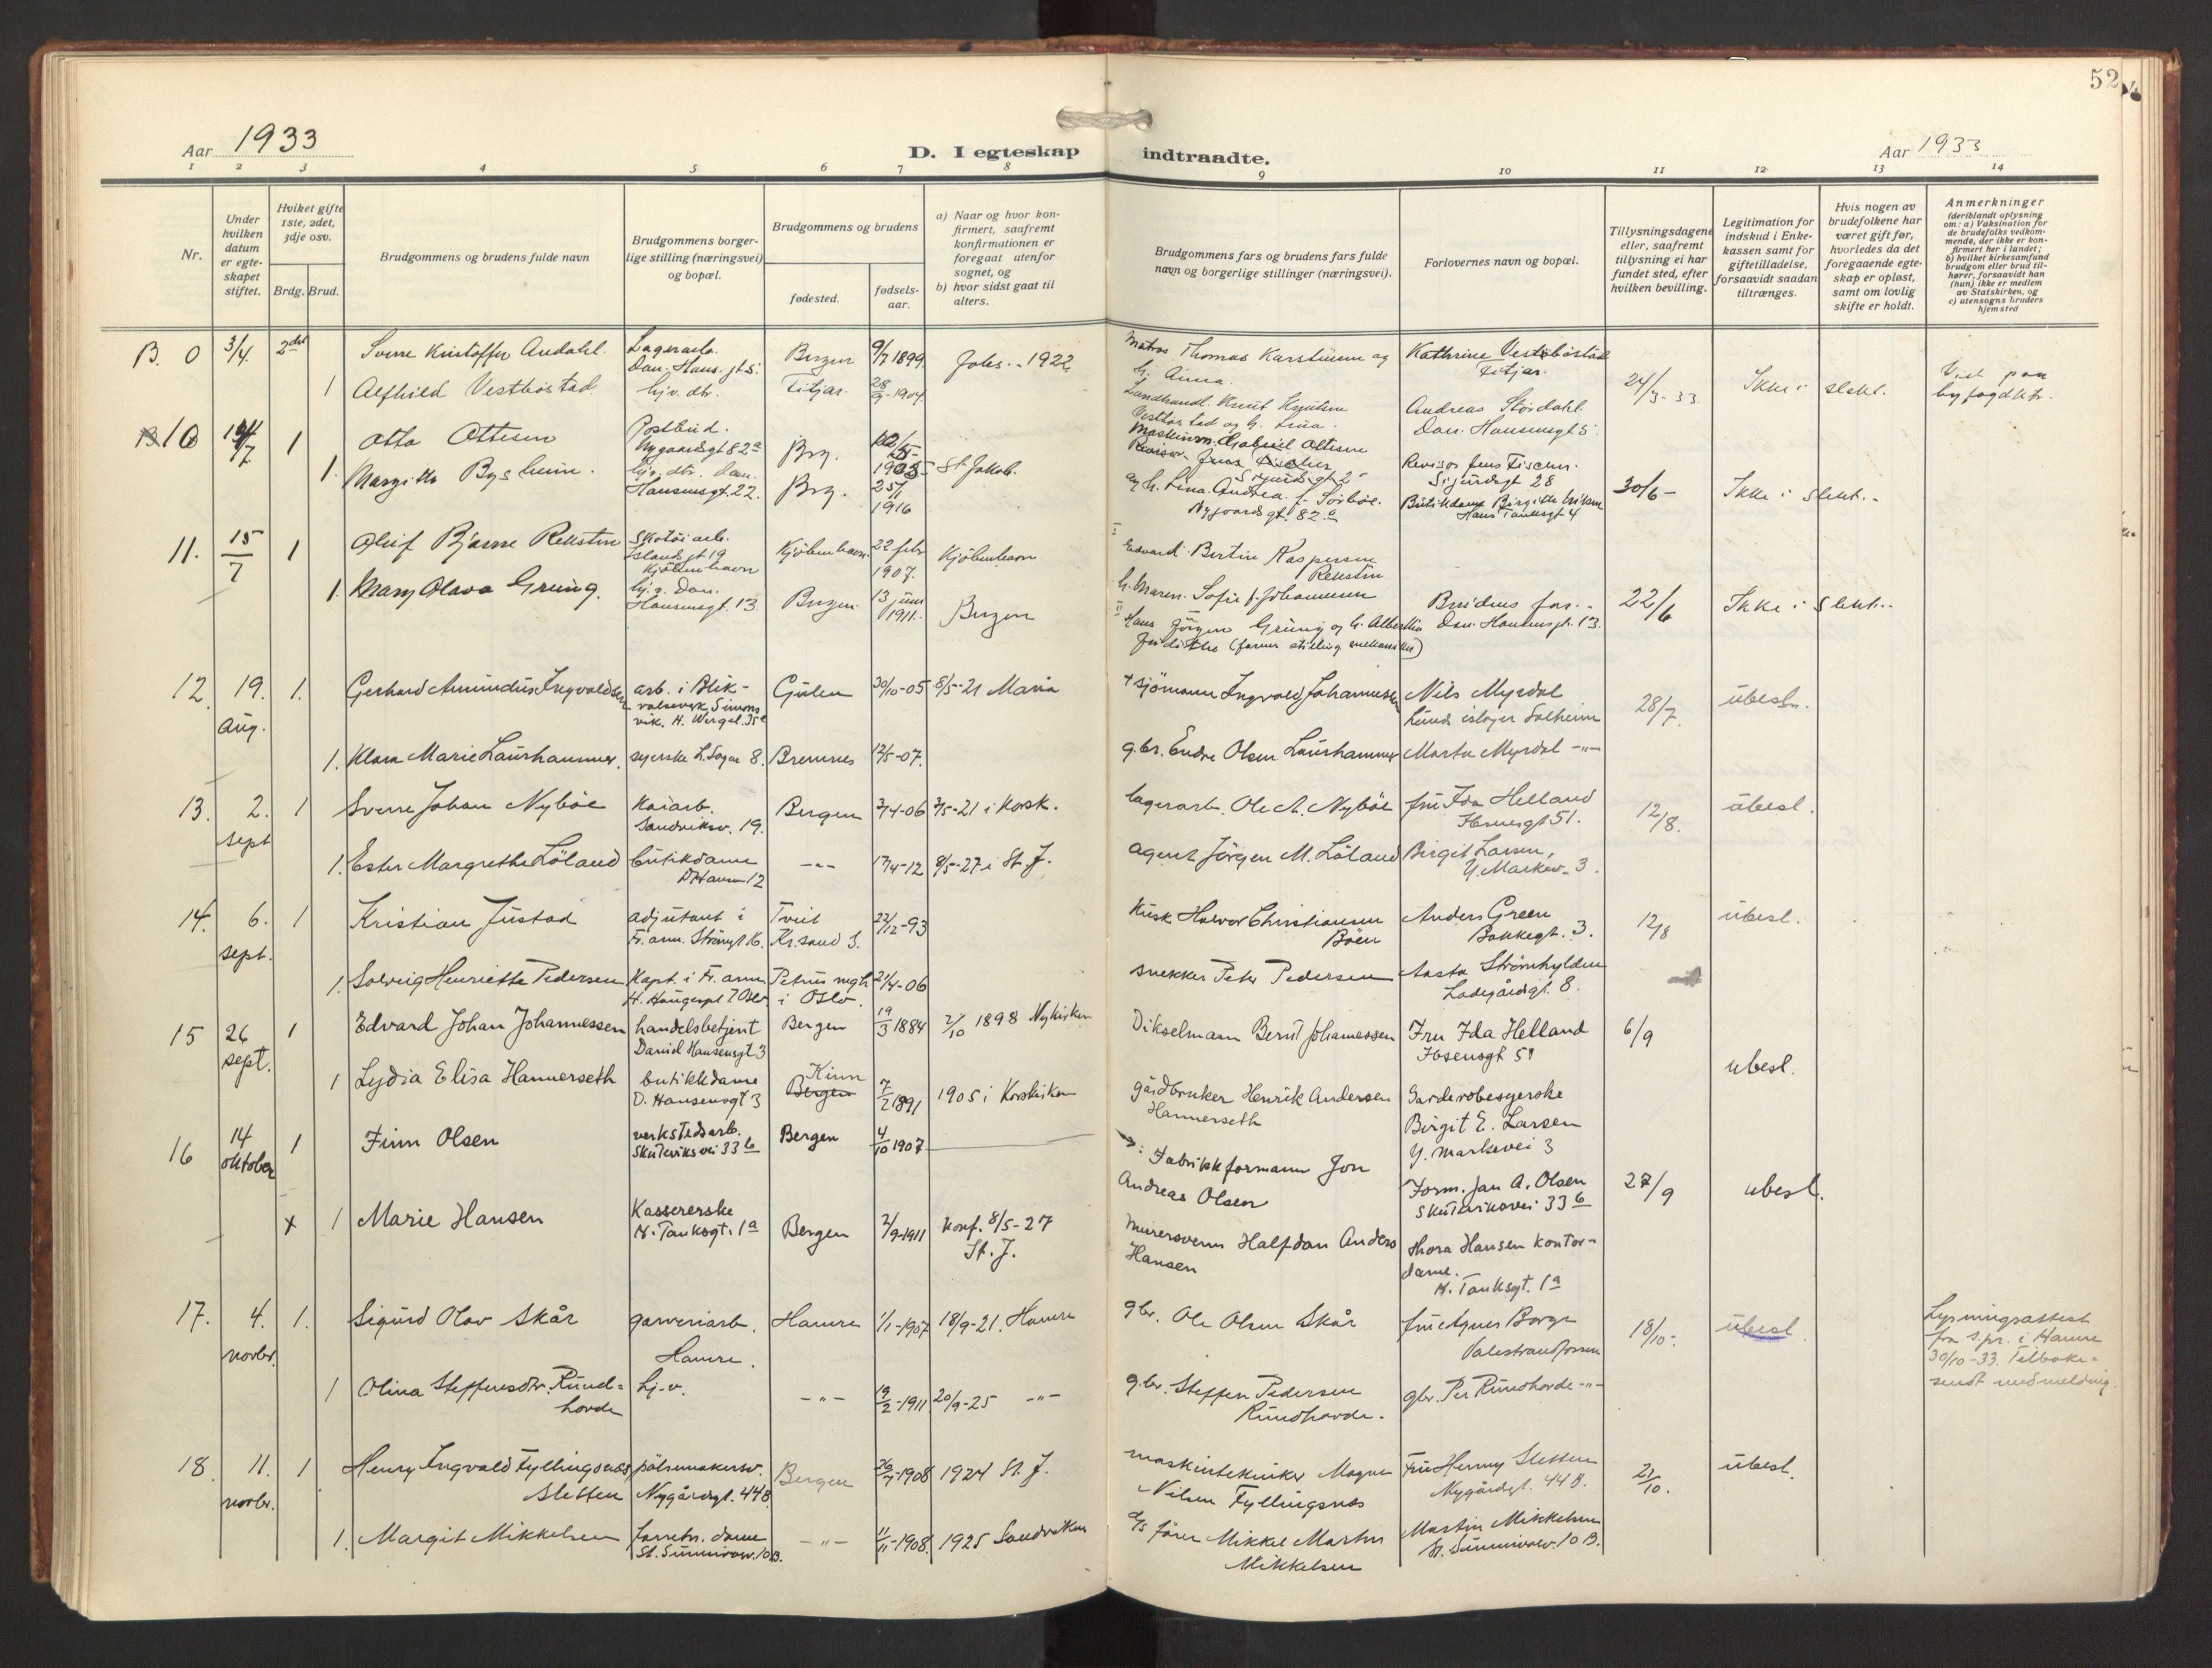 52
Aar 1933
D. I egteskap indtraadte.
Aar 1933
1 2 3 4 5 6 7 8 9 10 11 12 13 14
Nr.
Under hvilken datum er egteskapet stiftet.
Hvilket gifte 1ste, 2det, 3dje osv.
Brdg. Brud.
Brudgommens og brudens fulde navn
Brudgommens borgerlige stilling (næringsvei) og bopæl.
Brudgommens og brudens
fødested.
fødselsaar.
a) Naar og hvor konfirmert, saafremt konfirmationen er foregaat utenfor sognet, og
b) hvor sidst gaat til alters.
Brudgommens fars og brudens fars fulde navn og borgerlige stillinger (næringsvei).
Forlovernes navn og bopæl.
Tillysningsdagene eller, saafremt tillysning ei har fundet sted, efter hvilken bevilling.
Legitimation for indskud i Enkekassen samt for giftetilladelse, forsaavidt saadan tiltrænges.
Hvis nogen av brudefolkene har været gift før, hvorledes da det foregaaende egteskap er opløst, samt om lovlig skifte er holdt.
Anmerkninger
(deriblandt oplysning om: a) Vaksination for de brudefolks vedkommende, der ikke er konfirmert her i landet; b) hvilket kirkesamfund brudgom eller brud tilhører, forsaavidt han (hun) ikke er medlem av Statskirken, og c) utensogns bruders hjemsted
B. 0 3/4. 2det Sverre Kristoffer Andahl. Lagerarb. Bergen 9/7 1899 Johs. - 1922
Dan. Hans. gt 5.
1 Alfhild Vestbøstad hjv. dtr. Fitjar. 28/9-1904
Matros Thomas Karstensen og
h. Anna.
Landhandl. Knut Knutsen
Vestbøstad og h. Lina.
Kathrine Vestbøstad
Fitjar.
Andreas Størdahl.
Dan. Hansensgt 5.
24/3-33 Ikke i slekt. Viet paa
byfogdktr.
10 /7 1 Otto Ottesen Postbud. Brg. St. Jakob.
Nygaardsgt 82a
1. Margitha Bysheim. hj.v. dtr. Dan. Brg. 25/1
Hansensgt. 22. 1916
Maskinm. Gabriel Ottesen
og h. Lina. Andrea f. Soiböe.
Nygaardsgt. 82a
Revisor Jens Fischer.
Sigurdsgt 28
Butikdame Birgitte Eriksen
Hans Tanksgt 4
30/6- Ikke i slekt.-
11. 15/7 1 Oluf Bjarne Reksten Skotøiarb. Kjøbenhavn 22 febr Kjøbenhavn
Islandsgt 19 1907.
Kjøbenhavn
1. Mary Olava Grung. hj. v. Dan. Bergen 13 juni Bergen
Hansensgt. 13. 1911.
I Edvard. Bertin Kaspersen
Rekstin
h. Maren. Sofie f. Johannesen
II Hans Jörgen Grung og h. Albertha
Juditha (farens stilling mekaniker)
Brudens far.-
Dan. Hansensgt. 13.
22/6 Ikke i slekt..
12. 19. 1. Gerhard Amandus Ingvaldsen arb. i Blik- Gulen 30/10-05 8/5-21 Maria
aug. valseverk, Simons
vik. H. Wergel. 35a
1. Klara Marie Laurhammer. syerske L. Sagen 8. Bremnes 12/5-07.
+ sjömann Ingvald Johannesen
g.br. Endre Olsen Laurhammer
Nils Myrdal
Lunds islager Solheim
Marta Myrdal -"-
28/7. ubesl.
13. 2. 1 Sverre Johan Nyböe Kaiarb. Bergen 7/4-06 7/5-21 i Korsk.
sept Sandviksv. 19.
1. Ester Margrethe Löland butikdame -"- 17/4-12 8/5-27 i St. J.
D. Hansen 12
lagerarb. Ole A. Nyböe
agent Jörgen M. Löland
fru Ida Helland
Ibsensgt 51.
Birgit Larsen,
Y. Markev. 3.
12/8. ubesl.
14. 6. 1 Kristian Justad adjutant i Tveit 22/12-93
sept. Fr. arm. Strandgt 16. Kr.sand S.
1. Solveig Henriette Pedersen Kapt. i Fr. arm Petrus mgh 21/4-06
H. Haugespl 7 Oslo i Oslo.
Kusk Halvor Christiansen
Böen
snekker Peter Pedersen
Anders Green
Bakkegt. 3.
Aasta Strømhylden
Ladegårdsgt. 8.
12/8 ubesl.
15 26 1 Edvard Johan Johannessen handelsbetjent Bergen 19/3 1884 2/10 1898 Nykirken
sept. Daniel Hansensgt 3
1 Lydia Elisa Hammerseth butikkdame Kinn 7/2 1891 1905 i Korskirken
D. Hansensgt 3 Bergen
Dikselmann Bernt Johannessen
gårdbruker Henrik Andersen
Hammerseth
Fru Ida Helland
Ibsensgt 51
Garderobesyerske
Birgit E. Larsen
Y. Markevei 3
6/9 ubesl.
16 14 1 Finn Olsen verkstedsarb. Bergen 4/10 1907
oktober Skuteviksvei 33 b
x 1 Marie Hansen Kassererske Bergen 2/9-1911 konf. 8/5-27
H. Tanksgt. 1a St. J.
Fabrikkformann Jon
Andreas Olsen
Murersvenn Halfdan Anders
Hansen
Form. Jan A. Olsen
Skuteviksvei 33 b
Thora Hansen kontor-
dame.
H. Tanksgt. 1a
27/9 ubesl.
17. 4. 1. Sigurd Olav Skår garveriarb. Hamre 1/1-1907 18/9-21. Hamre
novbr. Hamre.
1 Olina Steffensdtr. Rund- hj.v. -"- 19/2-1911 20/9-25 -"-
hovde
gbr. Ole Olsen Skår
g.br. Steffen Pedersen
Rundhovde.
fru Agnes Borge
Valestrandfossen
gbr. Per Rundhovde -"-
18/10. ubesl.
Lysningsattest
fra s.pr. i Hamre
30/10-33. Tilbake-
sendt medmelding.
18. 11. 1 Henry Ingvald Fyllingsnes pølsemakersv. Bergen 26/7-1908 1924 St. J.
novbr. Sletten Nygårdsgt. 44B
1. Margit Mikkelsen forretn. dame -"- 11/11-1908. 1925 Sandviken
St. Sunnivasv. 10B.
maskintekniker Magne
Nilsen Fyllingsnes
d/s fører Mikkel Martin
Mikkelsen
Fru Henny Sletten
Nygårdsgt. 44 B.
Martin Mikkelsen
St. Sunnivasv. 10 B.
21/10. ubesl.